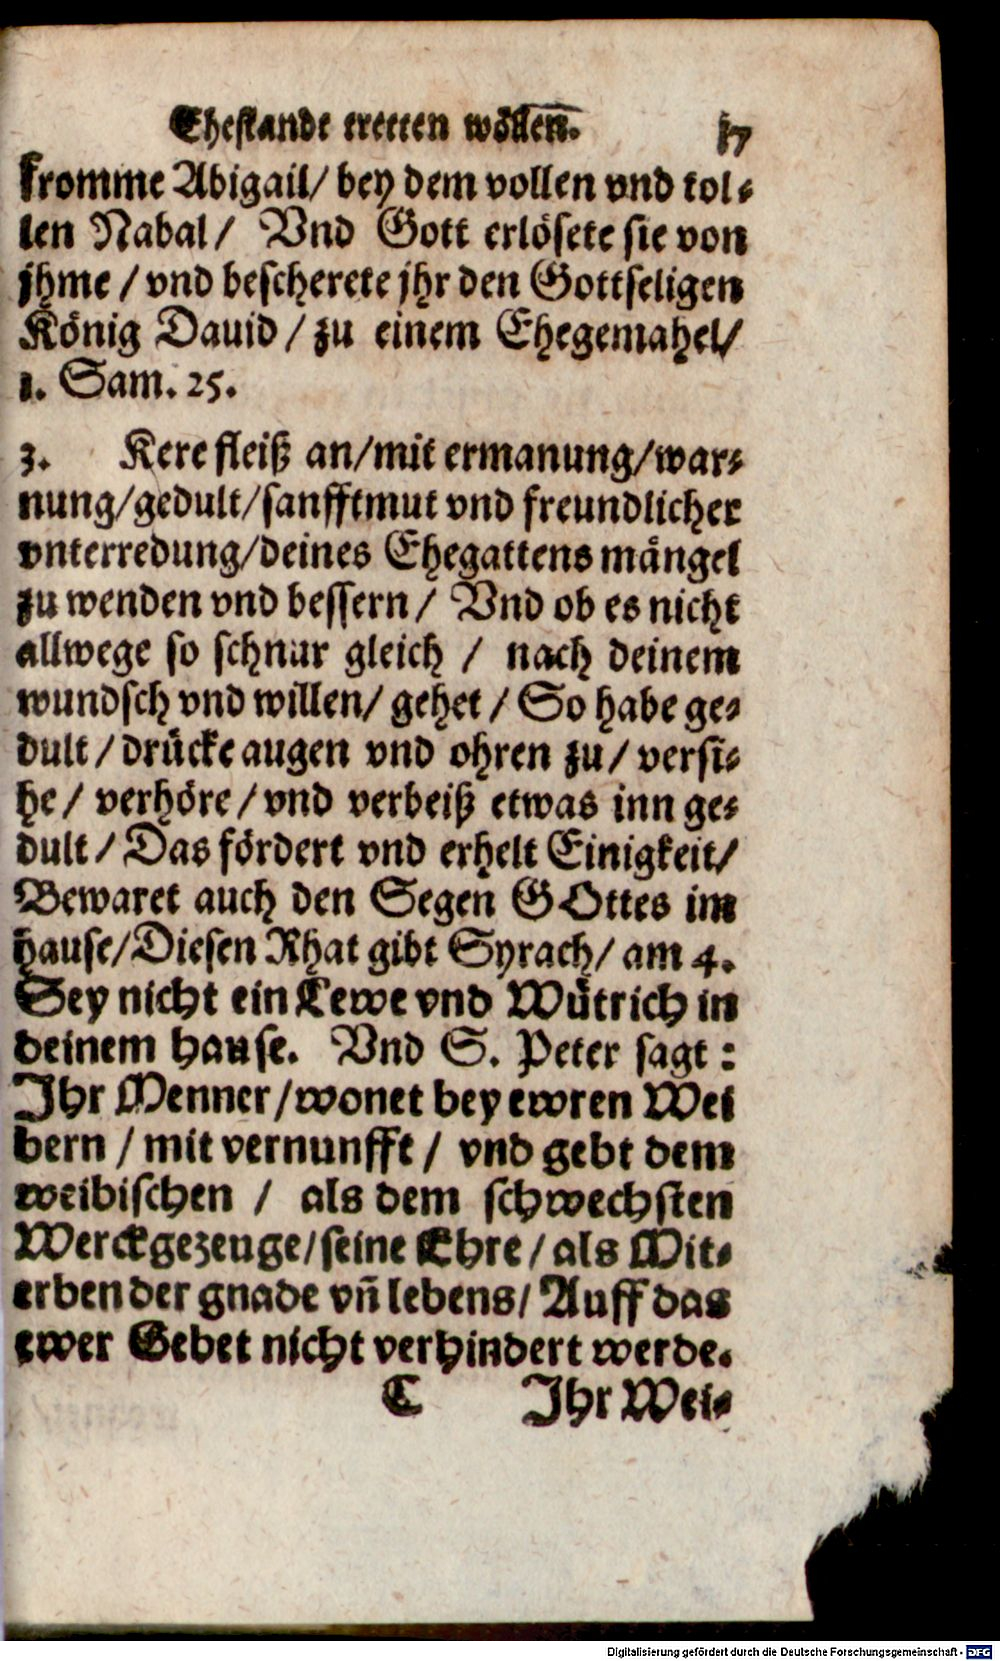 Ehestande tretten wöllen̄. 17
fromme Abigail/ bey dem vollen vnd tol-
len Nabal/ Vnd Gott erlösete sie von
jhme / vnd bescherete jhr den Gottseligen
König Dauid / zu einem Ehegemahel/
1. Sam. 25.
3. Kere fleiß an/mit ermanung/war-
nung/gedult/sanfftmut vnd freundlicher
vnterredung/deines Ehegattens mängel
zu wenden vnd bessern/ Vnd ob es nicht
allwege so schnur gleich / nach deinem
wundsch vnd willen/ gehet / So habe ge-
dult / drücke augen vnd ohren zu/ versi-
he/ verhöre/ vnd verbeiß etwas inn ge-
dult / Das fördert vnd erhelt Einigkeit/
Bewaret auch den Segen GOttes im
hause/Diesen Rhat gibt Syrach/ am 4.
Sey nicht ein Lewe vnd Wütrich in
deinem hause. Vnd S. Peter sagt:
Ihr Menner/wonet bey ewren Wei
bern / mit vernunfft/ vnd gebt dem
weibischen / als dem schwechsten
Werckgezeuge/seine Ehre/ als Mit-
erben der gnade vn̄ lebens/ Auff das
ewer Gebet nicht verhindert werde.
C Ihr Wei-
Digitalisierung gefördert durch die Deutsche Forschungsgemeinschaft - DFG